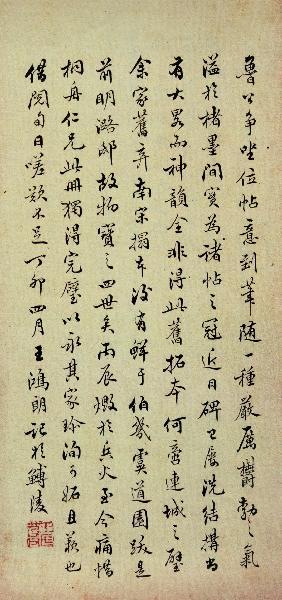 魯公爭坐位帖意到筆随一種嚴厲欝勃之氣
溢於楮墨間實為諸帖之冠近日碑已屡洗結搆尚
有大畧而神韻全非得此舊拓本何啻連城之璧
余家舊弆南宋搨本後有鮮于伯幾虞道園跋是
前明潞邸故物寶之四世矣丙辰燬於兵火至今痛惜
桐舟仁兄此冊獨得完璧以永其家珎洵可妬且羡也
借閱旬日嗟歎不足丁卯四月王鴻明記於鱄陵